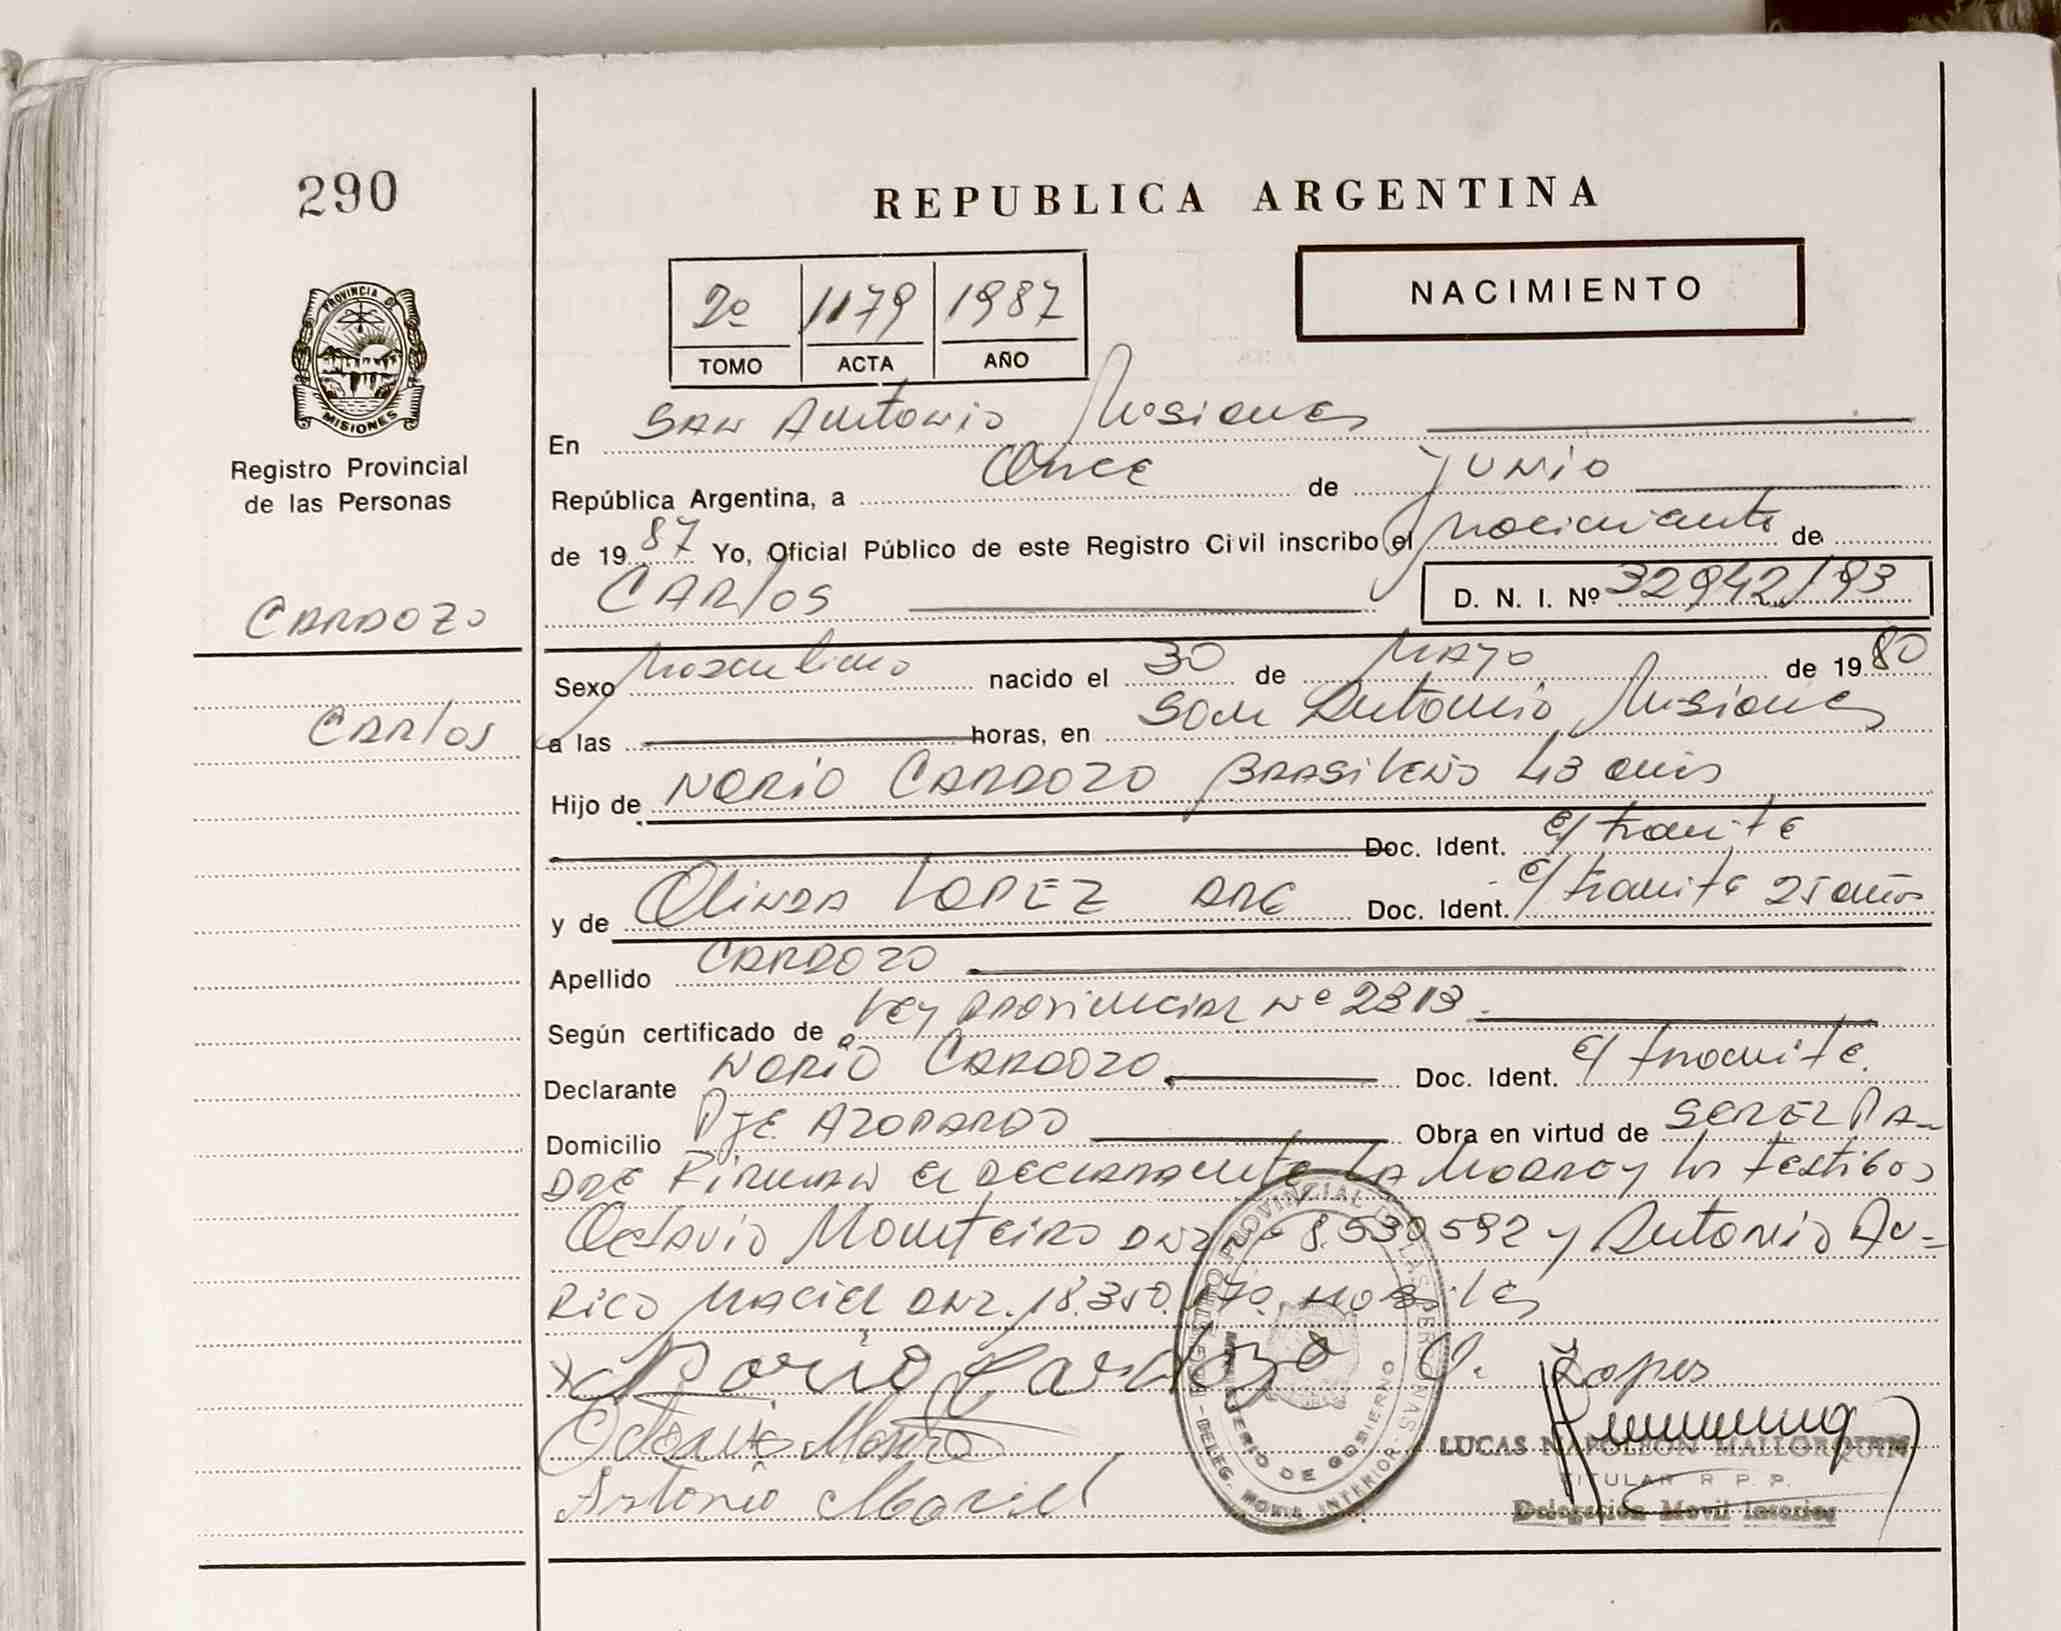 290
REPUBLICA ARGENTINA
NACIMIENTO
2º 1179 1987
TOMO ACTA AÑO
PROVINCIA DE
MISIONES
Registro Provincial
de las Personas
CARDOZO
CARLOS
En SAN ANTONIO Misiones
República Argentina, a Once de JUNIO
de 1987 Yo, Oficial Público de este Registro Civil inscribo el nacimiento de
CARLOS D. N. I. Nº 32942/93
Sexo Masculino nacido el 30 de MAYO de 1980
a las horas, en San Antonio Misiones
Hijo de NORIO CARDOZO BRASILEÑO 43 años
Doc. Ident. e/ tramite
y de OLINDA LOPEZ ARG Doc. Ident. e/ tramite 25 años
Apellido CARDOZO
Según certificado de Ley PROVINCIAL Nº 2313.
Declarante NORIO CARDOZO Doc. Ident. e/ tramite.
Domicilio PJE AZOPARDO Obra en virtud de SER EL PA-
DRE FIRMAN EL DECLARANTE LA MADRE y los testigos
Octavio Monteiro DNI Nº 8.530592 y Antonio AU-
RICO MACIEL DNI. 18.350.170
Norio Cardozo O. Lopes
Octavio
Antonio Maciel
REGISTRO PROVINCIAL DE LAS PERSONAS
MINISTERIO DE GOBIERNO
DELEG. MOVIL INTERIOR
LUCAS NAPOLEON MALLORQUIN
TITULAR R. P. P.
Delegación Movil Interior